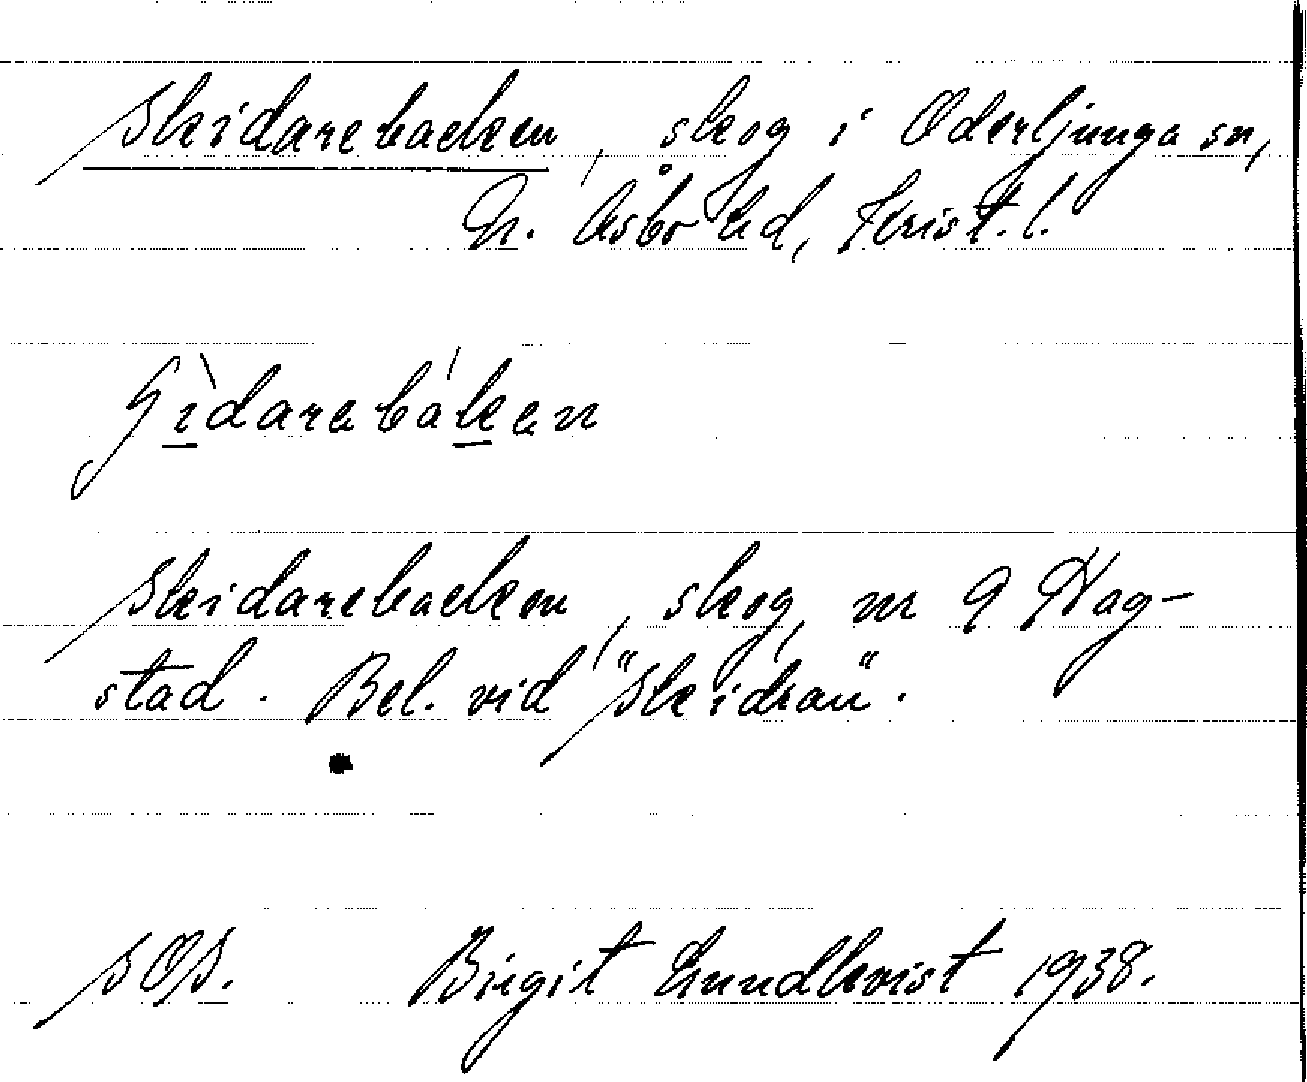 Skidarebacken, skog i Oderljunga sn,
N. Åsbo hd, Krist. l.
ʃìdarebáken
Skidarebacken, skog, m 9 Hag-
stad. Bel. vid "Skidran".
SOS. Birgit Lundkvist 1938.